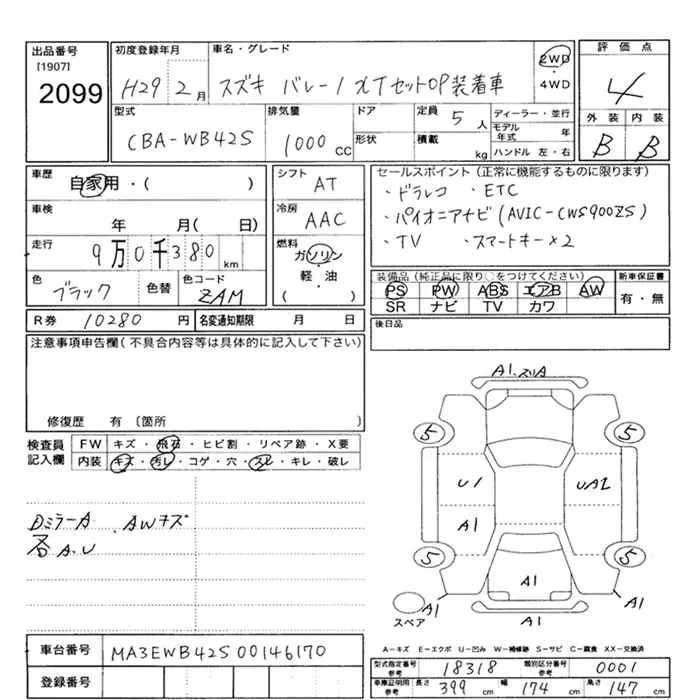 出品番号
[1907]
2099
初度登録年月
H29 2月
車名・グレード
スズキ バレーノ XTセットOP装着車
2WD
・
4WD
評価点
4
外装 内装
B B
型式
CBA-WB42S
排気量
1000 CC
ドア
形状
定員 5人
積載 kg
ディーラー・並行
モデル年式 年
ハンドル 左・右
車歴
自家用・( )
車検
年 月( 日)
走行
9万0千380 km
色
ブラック
色替
色コード
ZAM
シフト
AT
冷房
AAC
燃料
ガソリン
・
軽・油
( )
セールスポイント(正常に機能するものに限ります)
・ドラレコ ・ETC
・パイオニアナビ(AVIC-CW900ZS)
・TV ・スマートキー×2
装備品(純正品に限り○をつけてください)
PS PW ABS エアB AW
SR ナビ TV カワ
新車保証書
有・無
R券 10280 円
名変通知期限 月 日
後日品
注意事項申告欄(不具合内容等は具体的に記入して下さい)
修復歴 有 〔箇所 〕
検査員
記入欄
FW キズ・飛石・ヒビ割・リペア跡・X要
内装 キズ・汚レ・コゲ・穴・スレ・キレ・破レ
Dミラー A ・AWキズ
各A.U
A1.スリA
5 5
U1 UA2
A1
5 5
A1
A1 A1
A1
スペア
A-キズ E-エクボ U-凹み W-補修跡 S-サビ C-腐食 XX-交換済
車台番号 MA3EWB42S00146170
登録番号
型式指定番号
参考
18318
類別区分番号
参考
0001
車庫証明用
参考
長さ 399 cm
幅 174 cm
高さ 147 cm